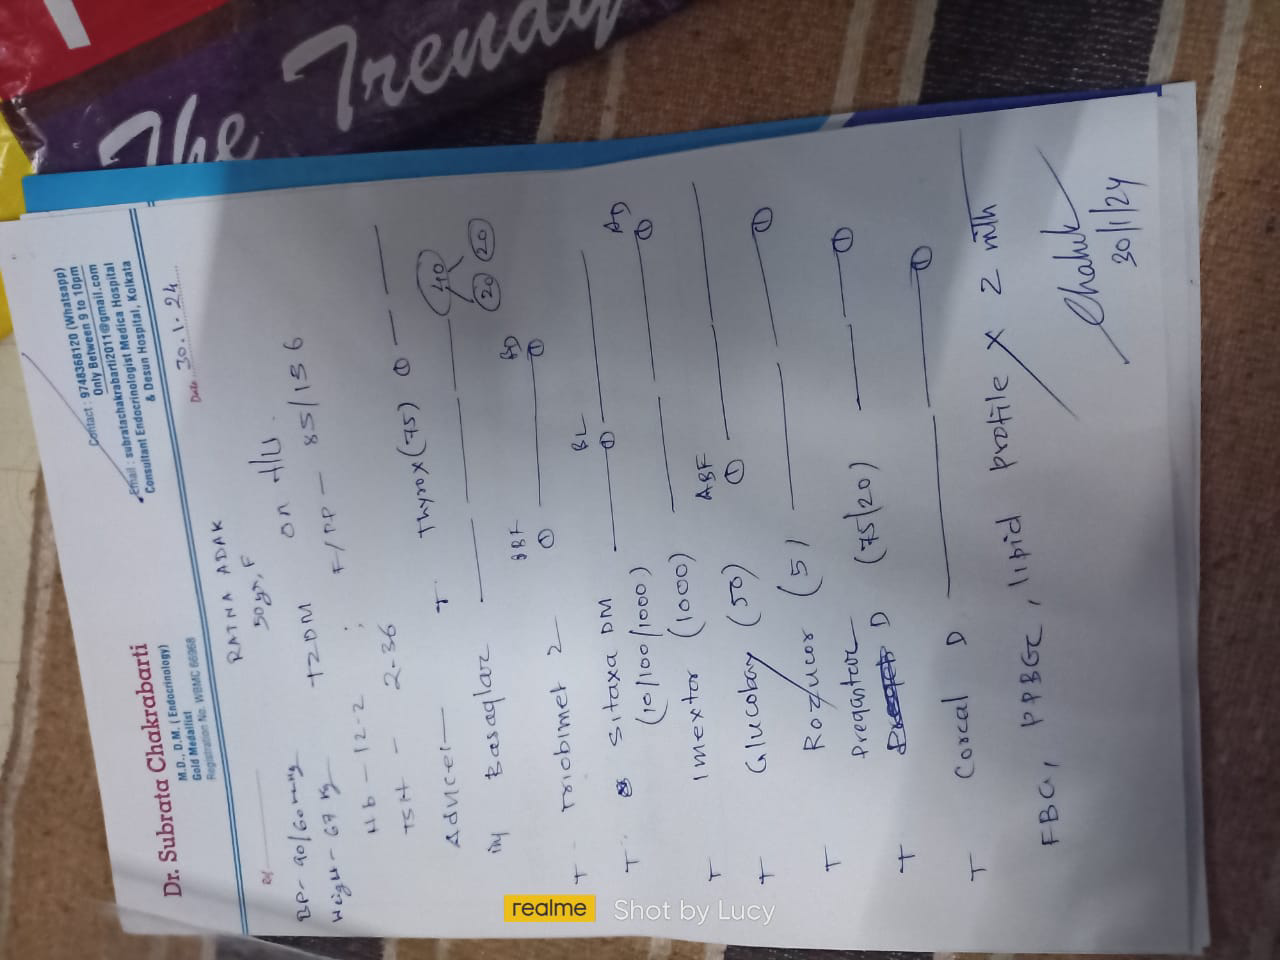 The Trendy
Dr. Subrata Chakrabarti
M.D., D.M. (Endocrinology)
Gold Medallist
Registration No. WBMC 66968
Contact : 9748368120 (Whatsapp)
Only Between 9 to 10pm
Email : subratachakrabarti2011@gmail.com
Consultant Endocrinologist Medica Hospital
& Desun Hospital, Kolkata
Date 30.1.24
RATNA ADAK
50 yr, F
BP- 90/60 mmHg T2DM on
67 kg F/PP - 85/156
Hb - 12.2 ;
TSH - 2.36
T Thyrox (75) ①
40
20 20
Inj Basaglar
BBF BD
T. Triobimet 2 ① ①
BL
T. Sitaxa DM ①
(10/100/1000) AD
T Imextor (1000) ①
ABF
T Glucobay (50) ①
T Rozucor (5) ①
T D (75/20) ①
T Corcal D ①
PPBG, lipid profile x 2 mth
30/1/24
realme Shot by Lucy